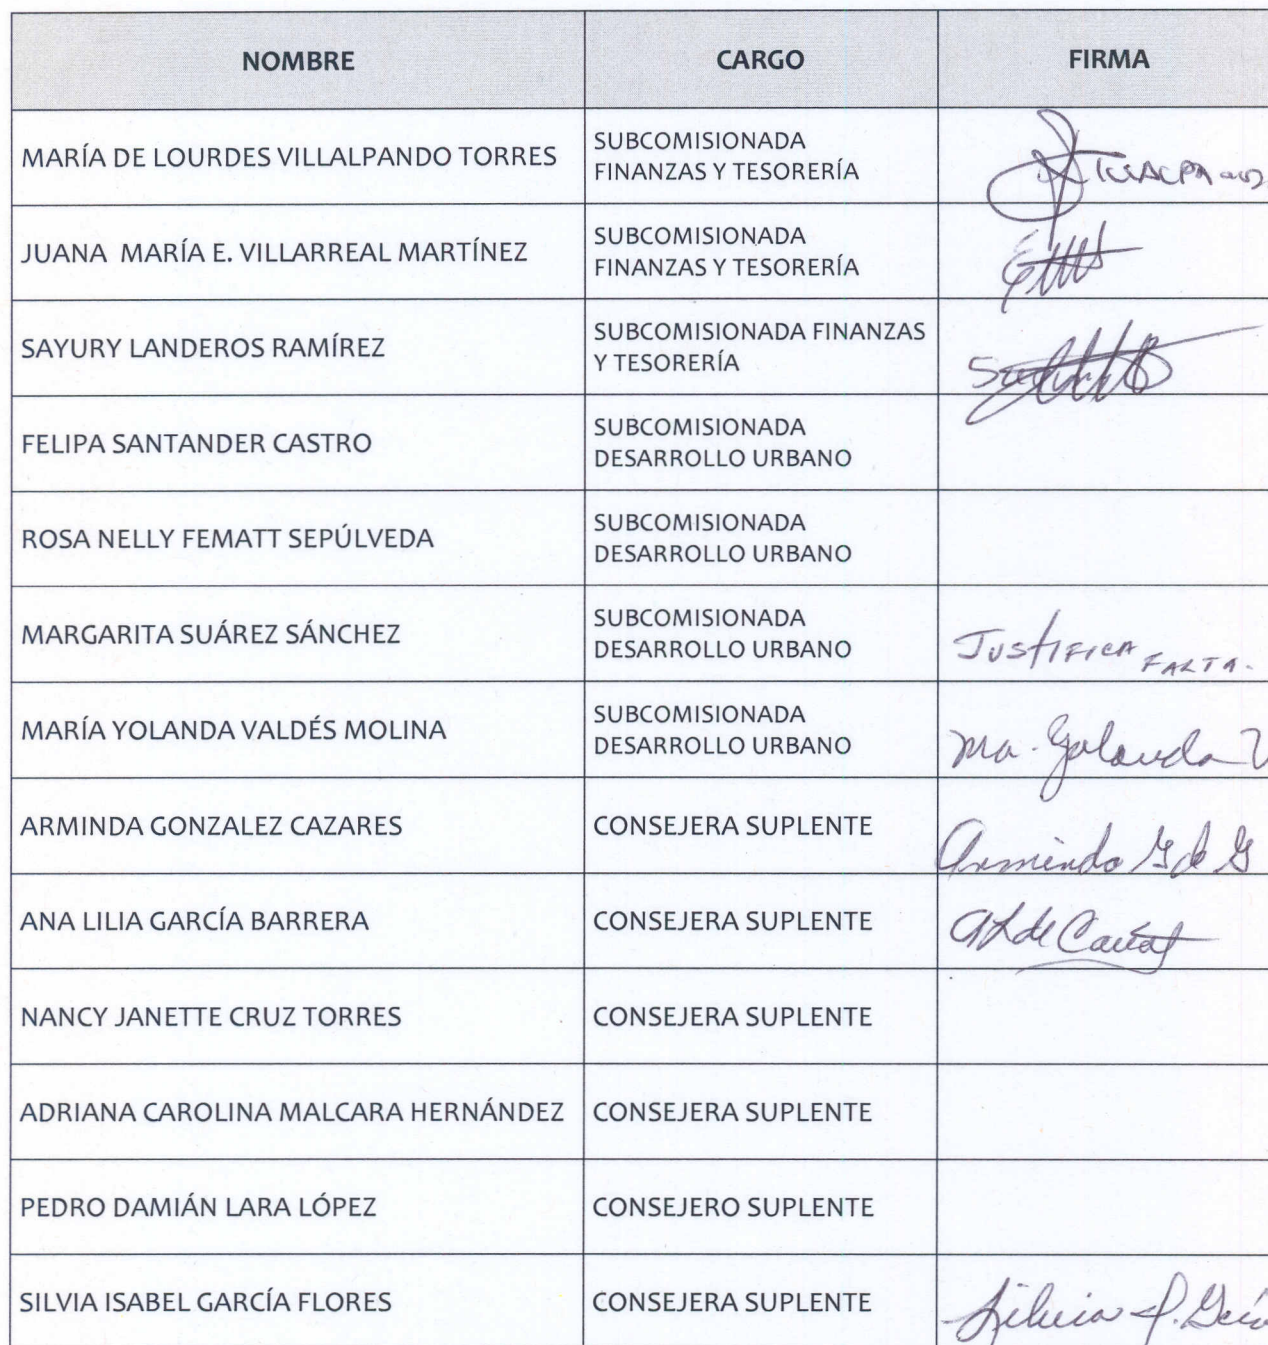 NOMBRE CARGO FIRMA
MARÍA DE LOURDES VILLALPANDO TORRES SUBCOMISIONADA
FINANZAS Y TESORERÍA
JUANA MARÍA E. VILLARREAL MARTÍNEZ SUBCOMISIONADA
FINANZAS Y TESORERÍA
SAYURY LANDEROS RAMÍREZ SUBCOMISIONADA FINANZAS
Y TESORERÍA
FELIPA SANTANDER CASTRO SUBCOMISIONADA
DESARROLLO URBANO
ROSA NELLY FEMATT SEPÚLVEDA SUBCOMISIONADA
DESARROLLO URBANO
MARGARITA SUÁREZ SÁNCHEZ SUBCOMISIONADA
DESARROLLO URBANO JUSTIFICA FALTA.
MARÍA YOLANDA VALDÉS MOLINA SUBCOMISIONADA
DESARROLLO URBANO Ma. Yolanda V
ARMINDA GONZALEZ CAZARES CONSEJERA SUPLENTE Arminda G de G
ANA LILIA GARCÍA BARRERA CONSEJERA SUPLENTE
NANCY JANETTE CRUZ TORRES CONSEJERA SUPLENTE
ADRIANA CAROLINA MALCARA HERNÁNDEZ CONSEJERA SUPLENTE
PEDRO DAMIÁN LARA LÓPEZ CONSEJERO SUPLENTE
SILVIA ISABEL GARCÍA FLORES CONSEJERA SUPLENTE Silvia I.